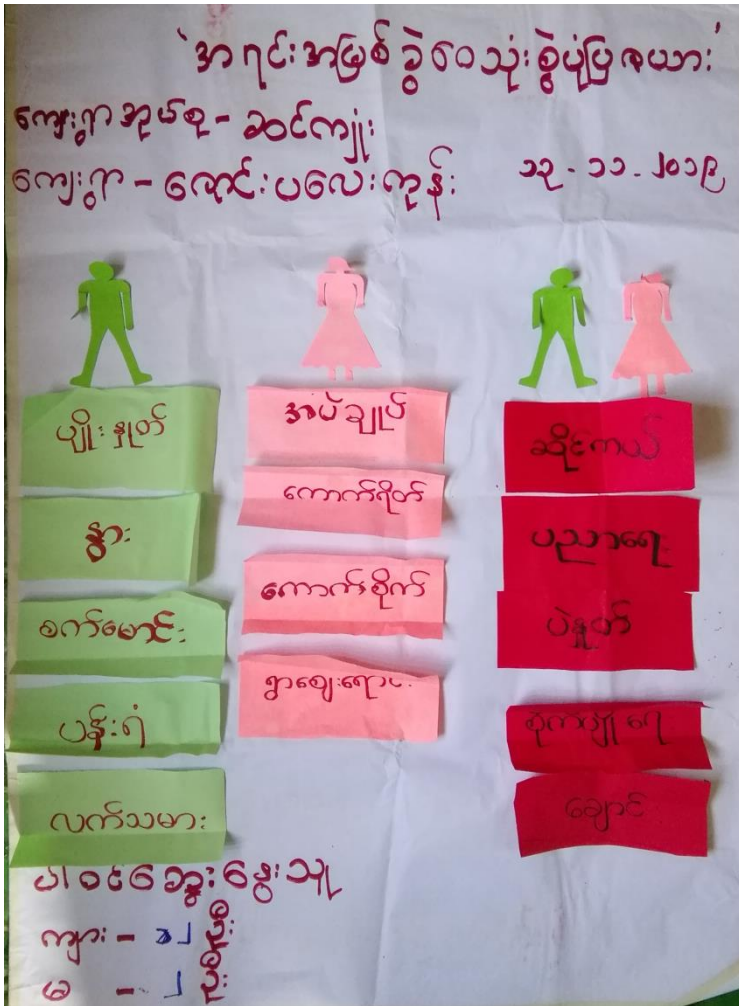 'အရင်းအမြစ်ခွဲဝေသုံးစွဲပုံပြဇယား'
ကျေးရွာအုပ်စု - ဆင်ကျုံး
ကျေးရွာ - ခေါင်းပလေးကုန်း ၁၃-၁၁-၂၀၁၉
ပျိုးနှုတ်
နွား
စက်မောင်း
ပန်းရံ
လက်သမား
အပ်ချုပ်
ကောက်ရိတ်
ကောက်စိုက်
ရွာဈေးရောင်း
ဆိုင်ကယ်
ပညာရေး
ပဲနှုတ်
စိုက်ပျိုးရေး
ချောင်း
ပါဝင်ဆွေးနွေးသူ
ကျား - ၁၂
မ - ၂